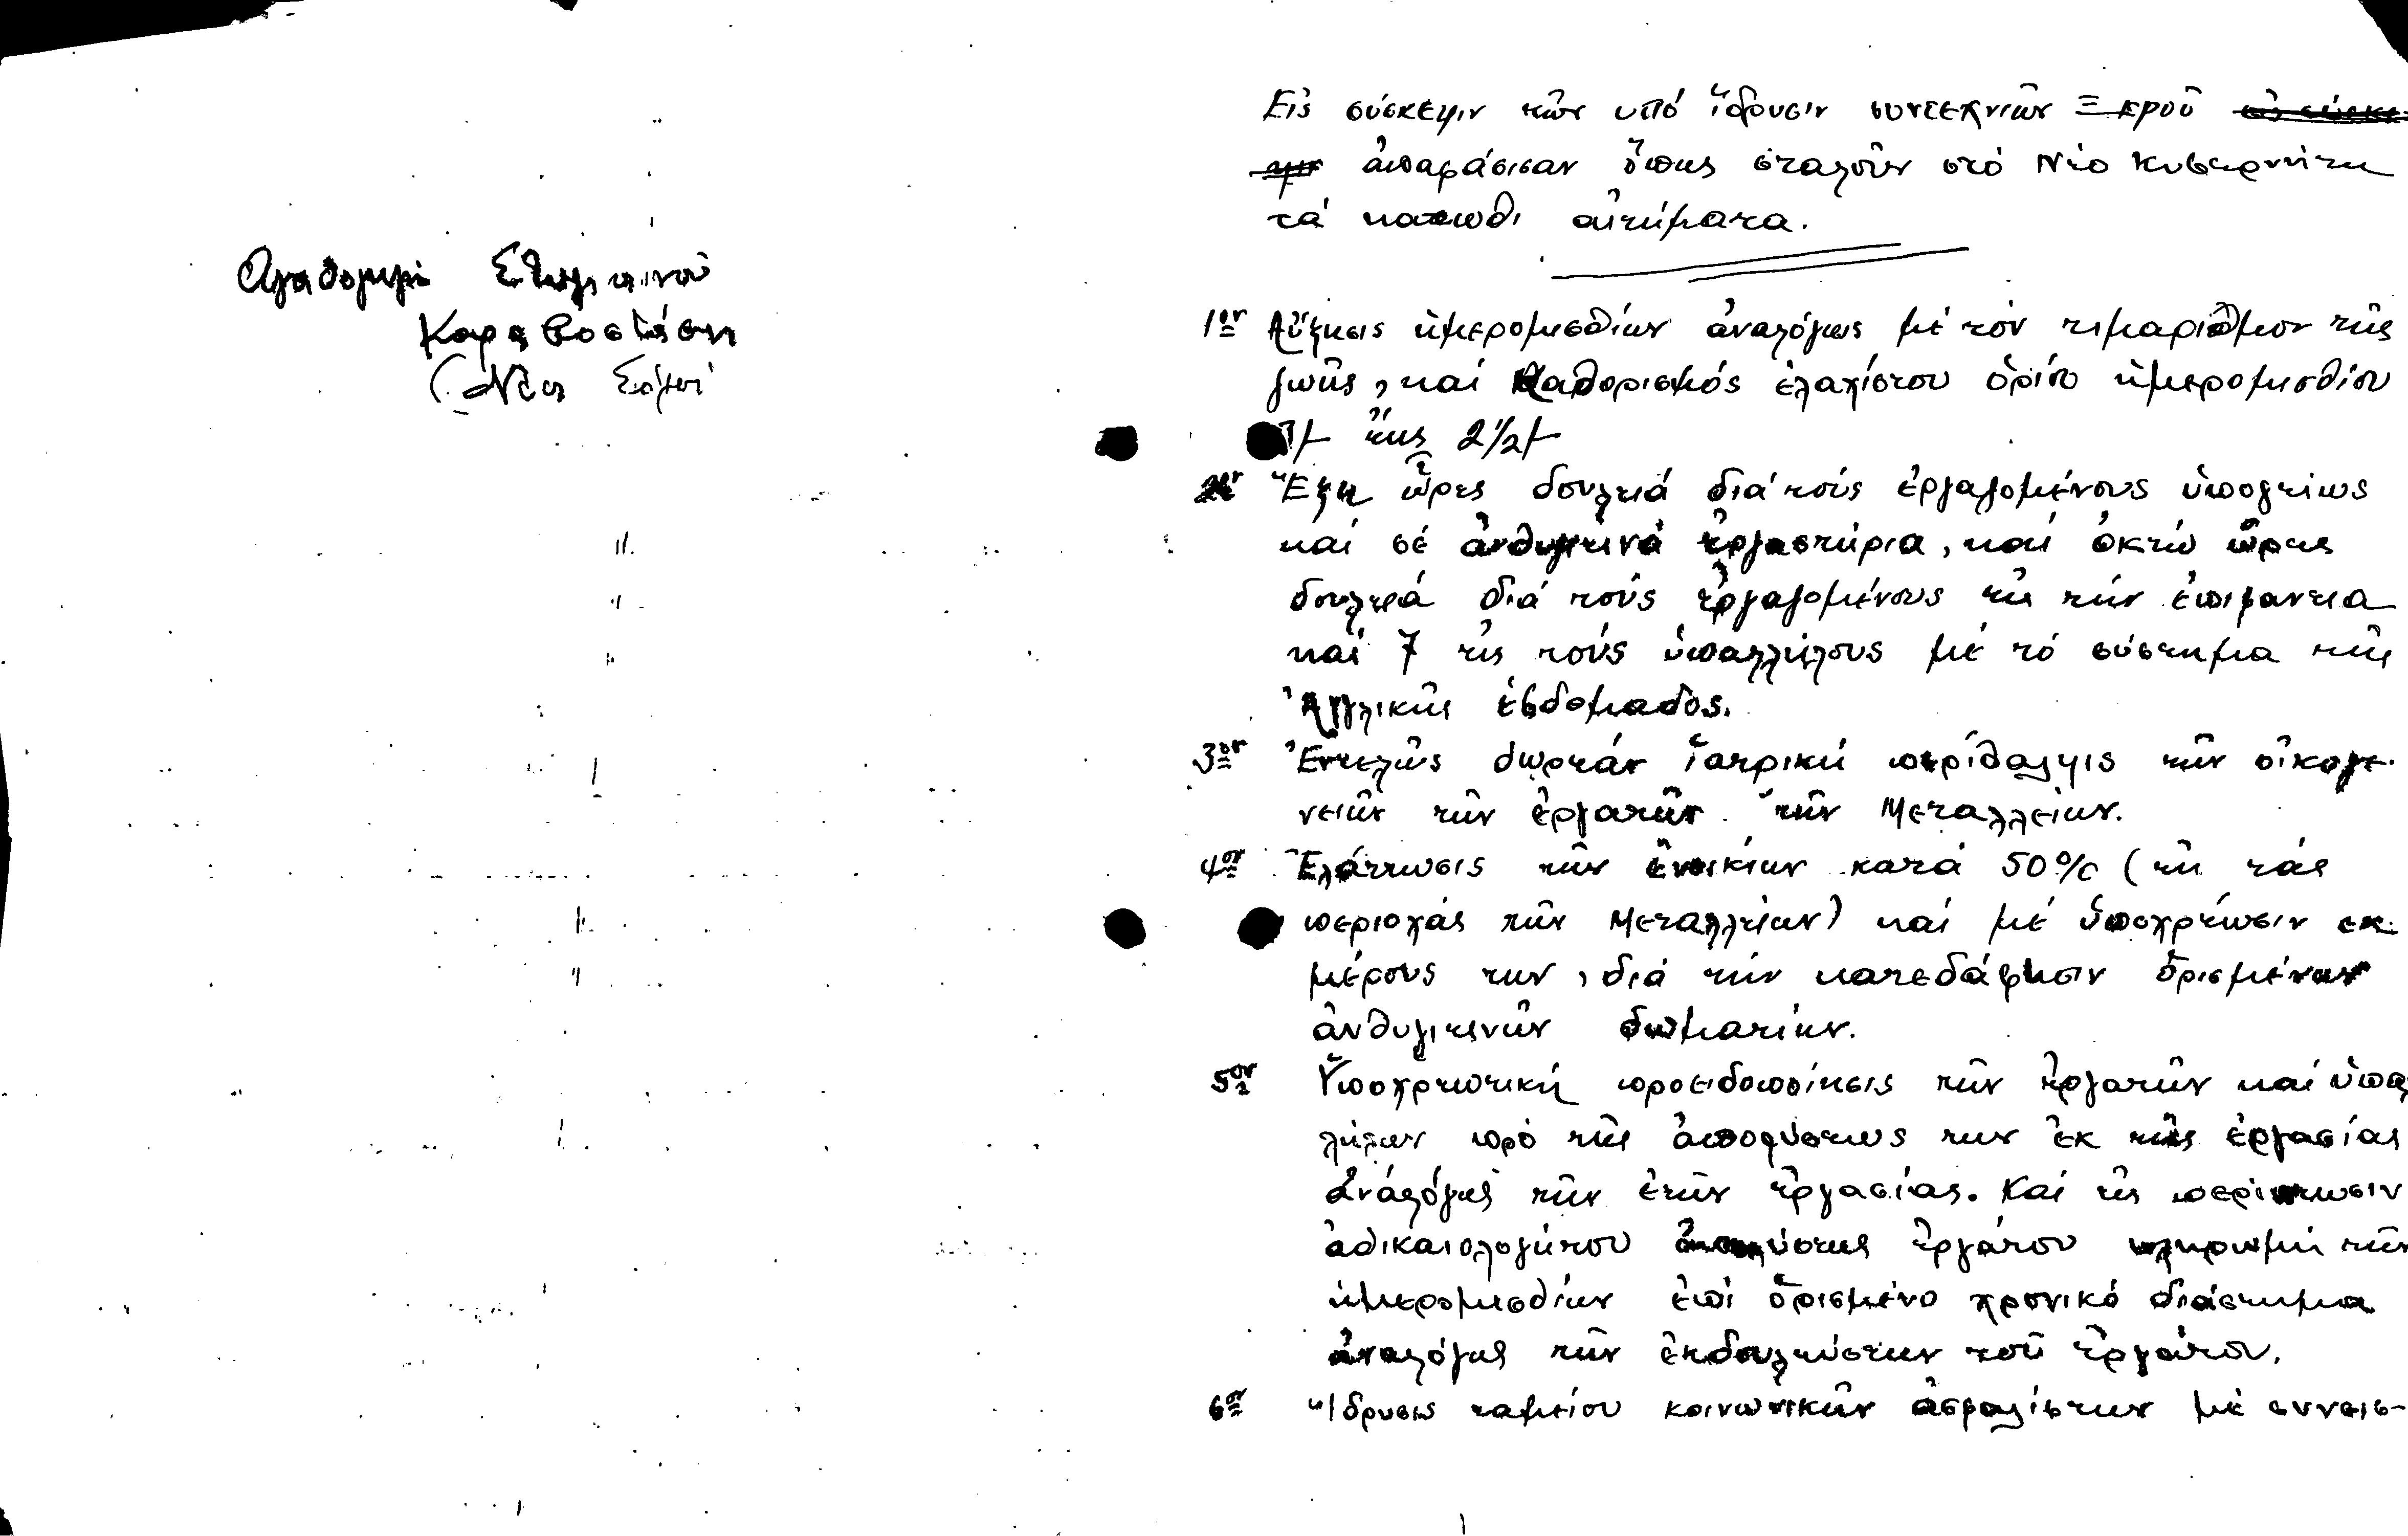 Στυλιανού
Καραβοστάσι
Εἰς σύσκεψιν τῶν υπό ἵδρυσιν συντεχνιῶν Ξερού
ἀπαφάσισαν ὅπως σταλοῦν στό Νέο Κυβερνήτη
τά κατωθι αἰτήματα.
1ον Αὔξησις ἡμερομισθίων ἀναλόγως μέ τόν τιμαριθμον τῆς
ζωῆς, καί Καθορισμός ἐλαχίστου ὁρίου ἡμερομισθίου
3/- ἕως 2 1/2/-
2ον Ἕξη ὧρες δουλειά διά τούς ἐργαζομένους ὑπογείως
καί σέ ἀνθυγιεινά ἐργαστήρια, καί ὀκτώ ὧρες
δουλειά διά τούς ἐργαζομένους εἰς τήν ἐπιφανεια
καί 7 εἰς τούς ὑπαλλήλους μέ τό σύστημα τῆς
Ἀγγλικῆς ἑβδομαδος.
3ον Ἐντελῶς δωρεάν ἰατρική περίθαλψις τῶν οἰκογε-
νειῶν τῶν ἐργατῶν τῶν Μεταλλείων.
4ον Ἐλάττωσις τῶν ἐνοικίων κατά 50% (εἰς τάς
περιοχάς τῶν Μεταλλείων) καί μέ ὑποχρέωσιν εκ
μέρους των, διά τήν κατεδάφισιν ὁρισμένων
ἀνθυγιεινῶν δωματίων.
5ον Ὑποχρεωτική προειδοποίησις τῶν ἐργατῶν καί ὑπαλ
λήλων πρό τῆς ἀπολύσεως των ἐκ τῆς ἐργασίας
ἀνάλόγως τῶν ἐτῶν ἐργασίας. Καί εἰς περίπτωσιν
ἀδικαιολογήτου ἀπολύσεως ἐργάτου πληρωμή τῶν
ἡμερομισθίων ἐπί ὁρισμένο χρονικό διάστημα
ἀναλόγως τῶν ἐκδουλεύσεων τοῦ ἐργάτου.
6ον Ἵδρυσις ταμείου κοινωνικῶν ἀσφαλίσεων μέ συνεισ-